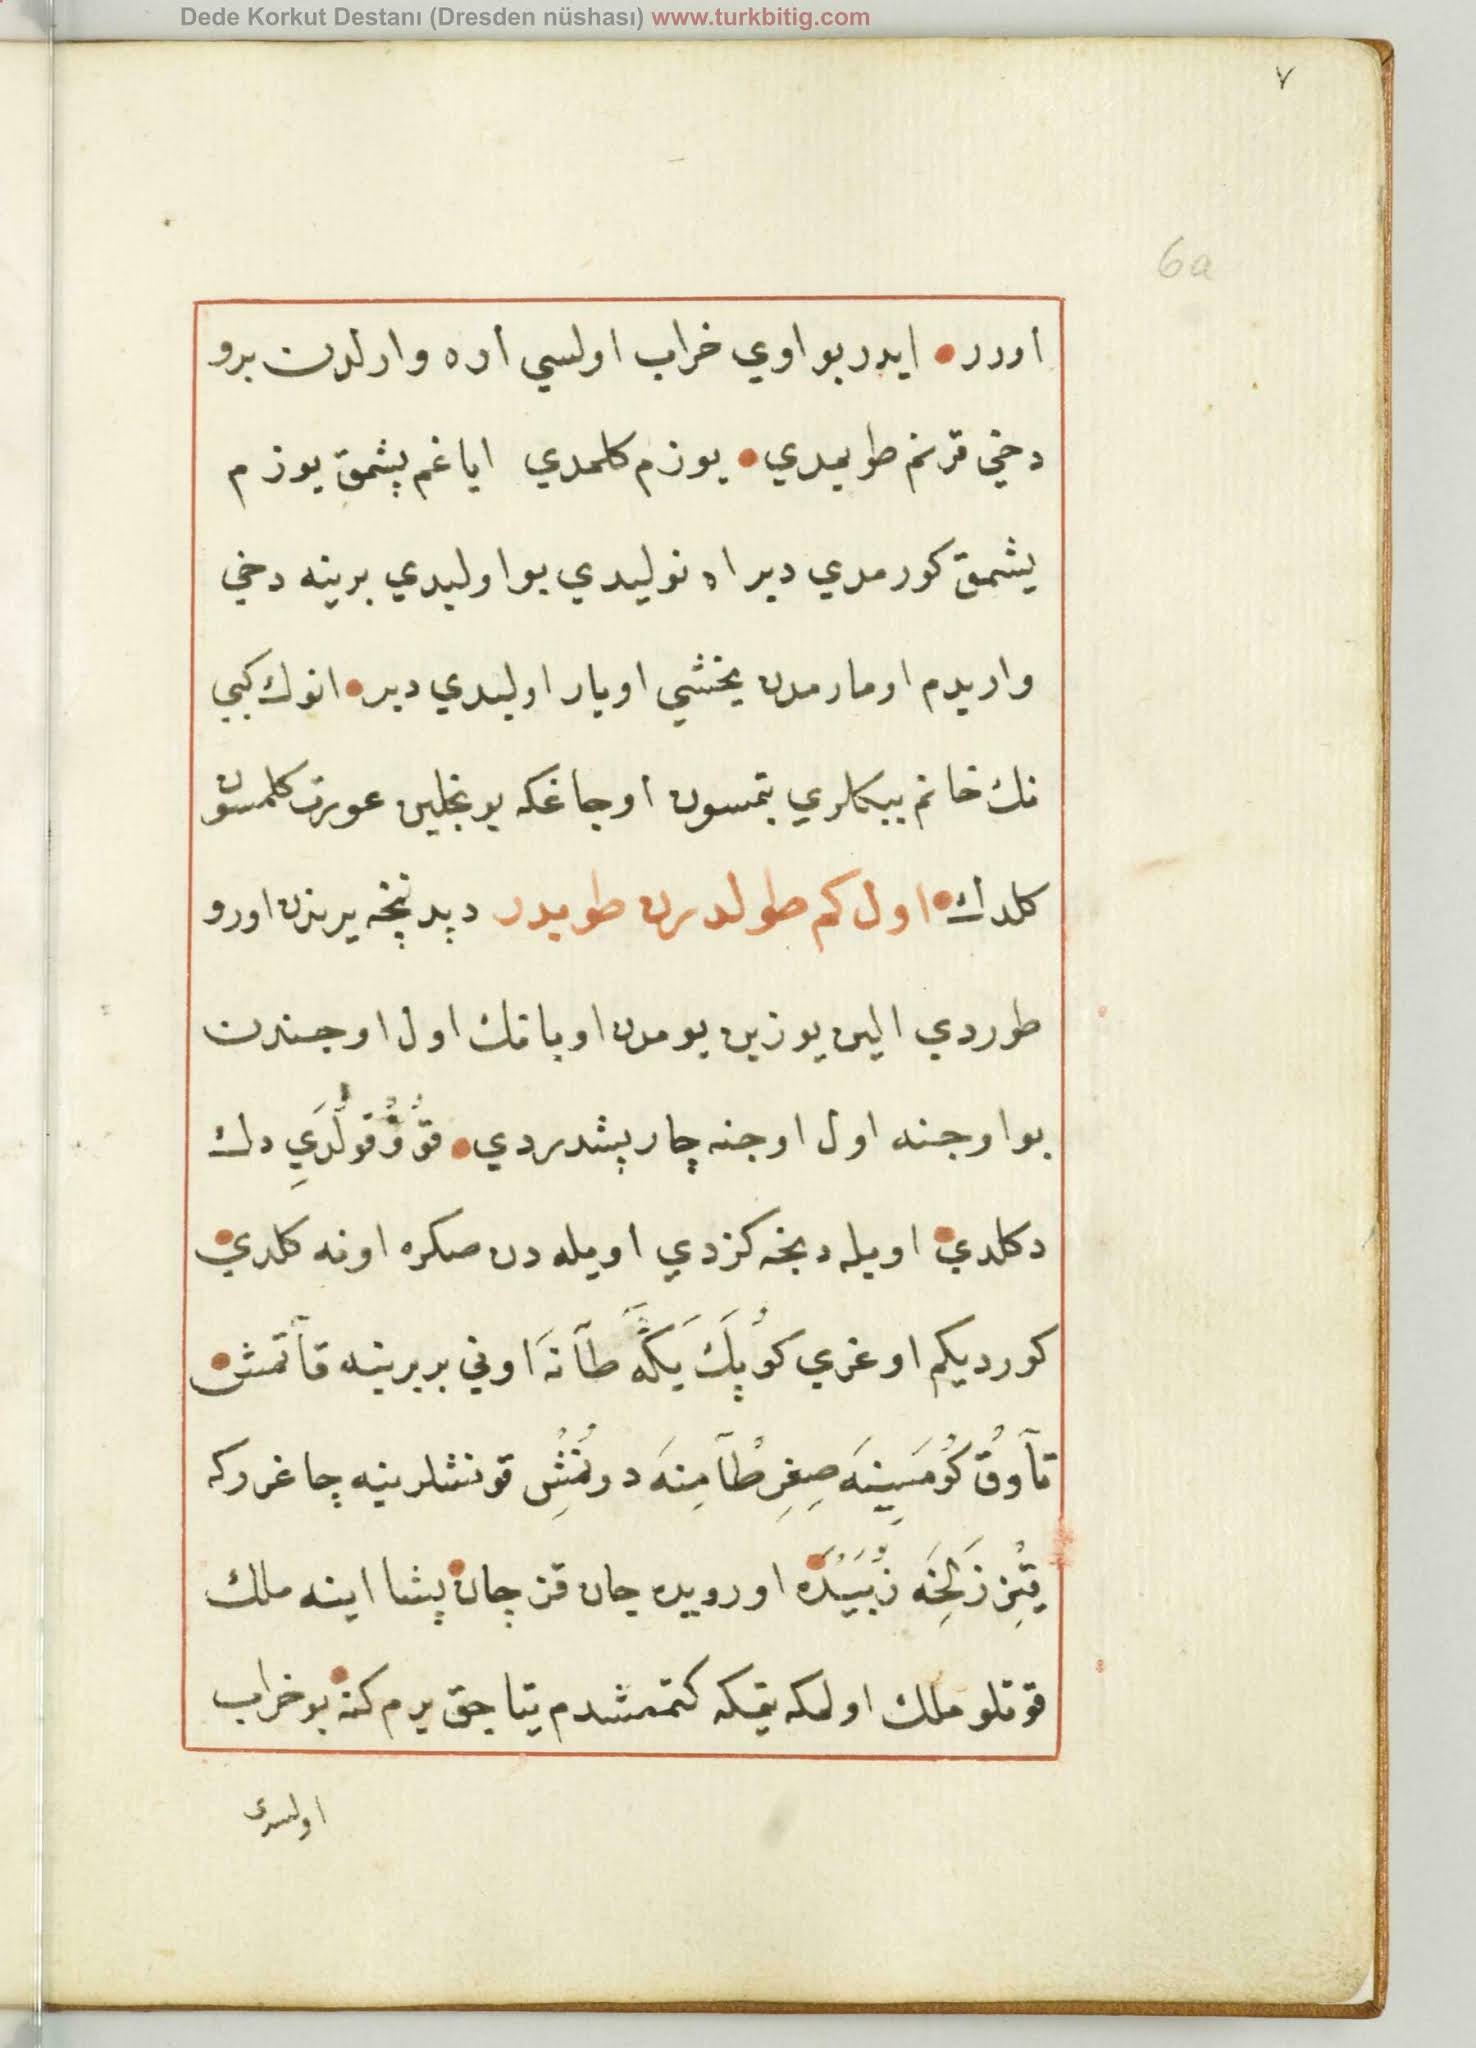 Dede Korkut Destanı (Dresden nüshası) www.turkbitig.com
٧
6a
اورر ايدر بو اوي خراب اولسي اره وارلدن برو
دخي قرنم طويمدي يوزم كلمدي اياغم پشمق يوزم
يشمق كورمدي دير اه نوليدي بو اوليدي برينه دخي
واريدم اومارمدن يخشي اويار اوليدي دير انوك كبي
نك خانم ببكلري بتمسون اوجاغكه بونجلين عورت كلمسون
كلدك اول كم طولدرن طويدر دپدنچه يرندن اورو
طوردي الين يوزين يومدن اوبانك اول اوجندن
بو اوجنه اول اوجنه چارپشدردي قوْ وْ قولَدِي دك
دكلدي اويله دنجه كزدي اويله دن صكره اونه كلدي
كورديكم اوغري كوُپَك يَكَه طآنَه اوني بربرينه قآتمش
تآوُق كُومَسِينَه صِغِر طُآمِنَه دونمُشِ قونشلرينه چاغرركه
قِيْز زَلِخَه زُبَيْدَه اورويده جان قز چان پشا اينه ملك
قوتلو ملك اولمكه يتمكه كتممشدم يتاجق يرم كنه بو خراب
اولسدى